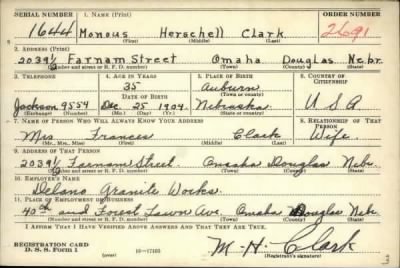 SERIAL NUMBER 1. NAME (Print) ORDER NUMBER
1644 Monous Herschell Clark 2691
(First) (Middle) (Last)
2. ADDRESS (Print)
2039½ Farnam Street Omaha Douglas Nebr.
(Number and street or R. F. D. number) (Town) (County) (State)
3. TELEPHONE 4. AGE IN YEARS 5. PLACE OF BIRTH 6. COUNTRY OF CITIZENSHIP
35 Auburn
DATE OF BIRTH (Town or county)
Jackson 9554 Dec. 25 1904 Nebraska U S A
(Exchange) (Number) (Mo.) (Day) (Yr.) (State or country)
7. NAME OF PERSON WHO WILL ALWAYS KNOW YOUR ADDRESS 8. RELATIONSHIP OF THAT PERSON
Mrs Frances Clark Wife
(Mr., Mrs., Miss) (First) (Middle) (Last)
9. ADDRESS OF THAT PERSON
2039½ Farnam Street. Omaha Douglas Nebr
(Number and street or R. F. D. number) (Town) (County) (State)
10. EMPLOYER'S NAME
Delano Granite Works.
11. PLACE OF EMPLOYMENT OR BUSINESS
40th and Forest Lawn Ave. Omaha Douglas Nebr.
(Number and street or R. F. D. number) (Town) (County) (State)
I AFFIRM THAT I HAVE VERIFIED ABOVE ANSWERS AND THAT THEY ARE TRUE.
REGISTRATION CARD
D. S. S. Form 1 (over) 16—17105 M. H. Clark
(Registrant's signature)